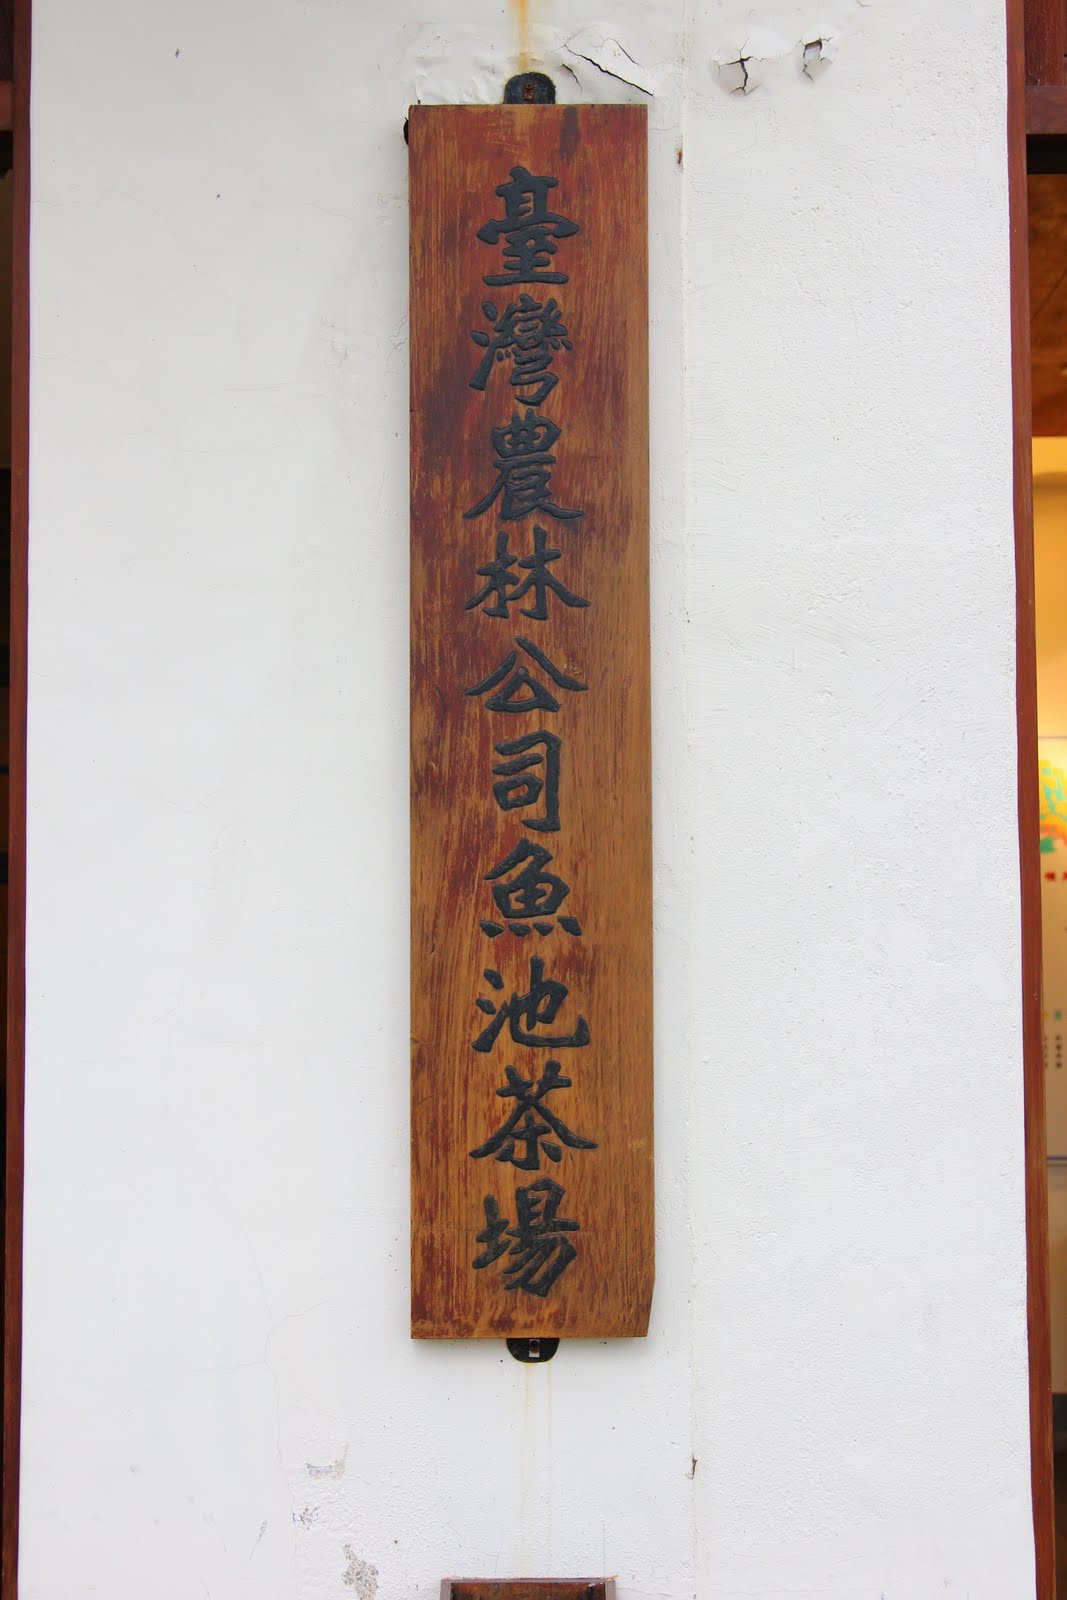 臺灣農林公司魚池茶場